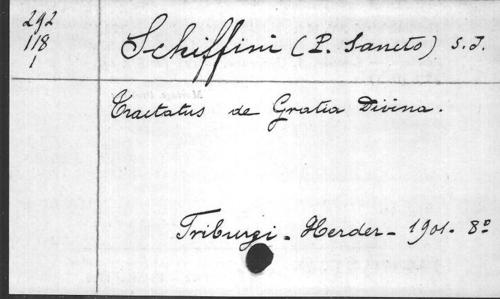 292
118
1
Schiffini (P. Sancto) S.J.
Tractatus de Gratia Divina.
Friburgi - Herder - 1901 - 8º